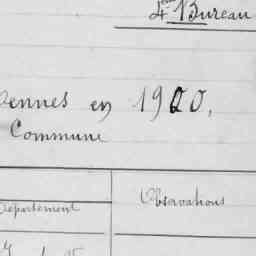 4ème Bureau
en 1900,
Commune
Département
Observations